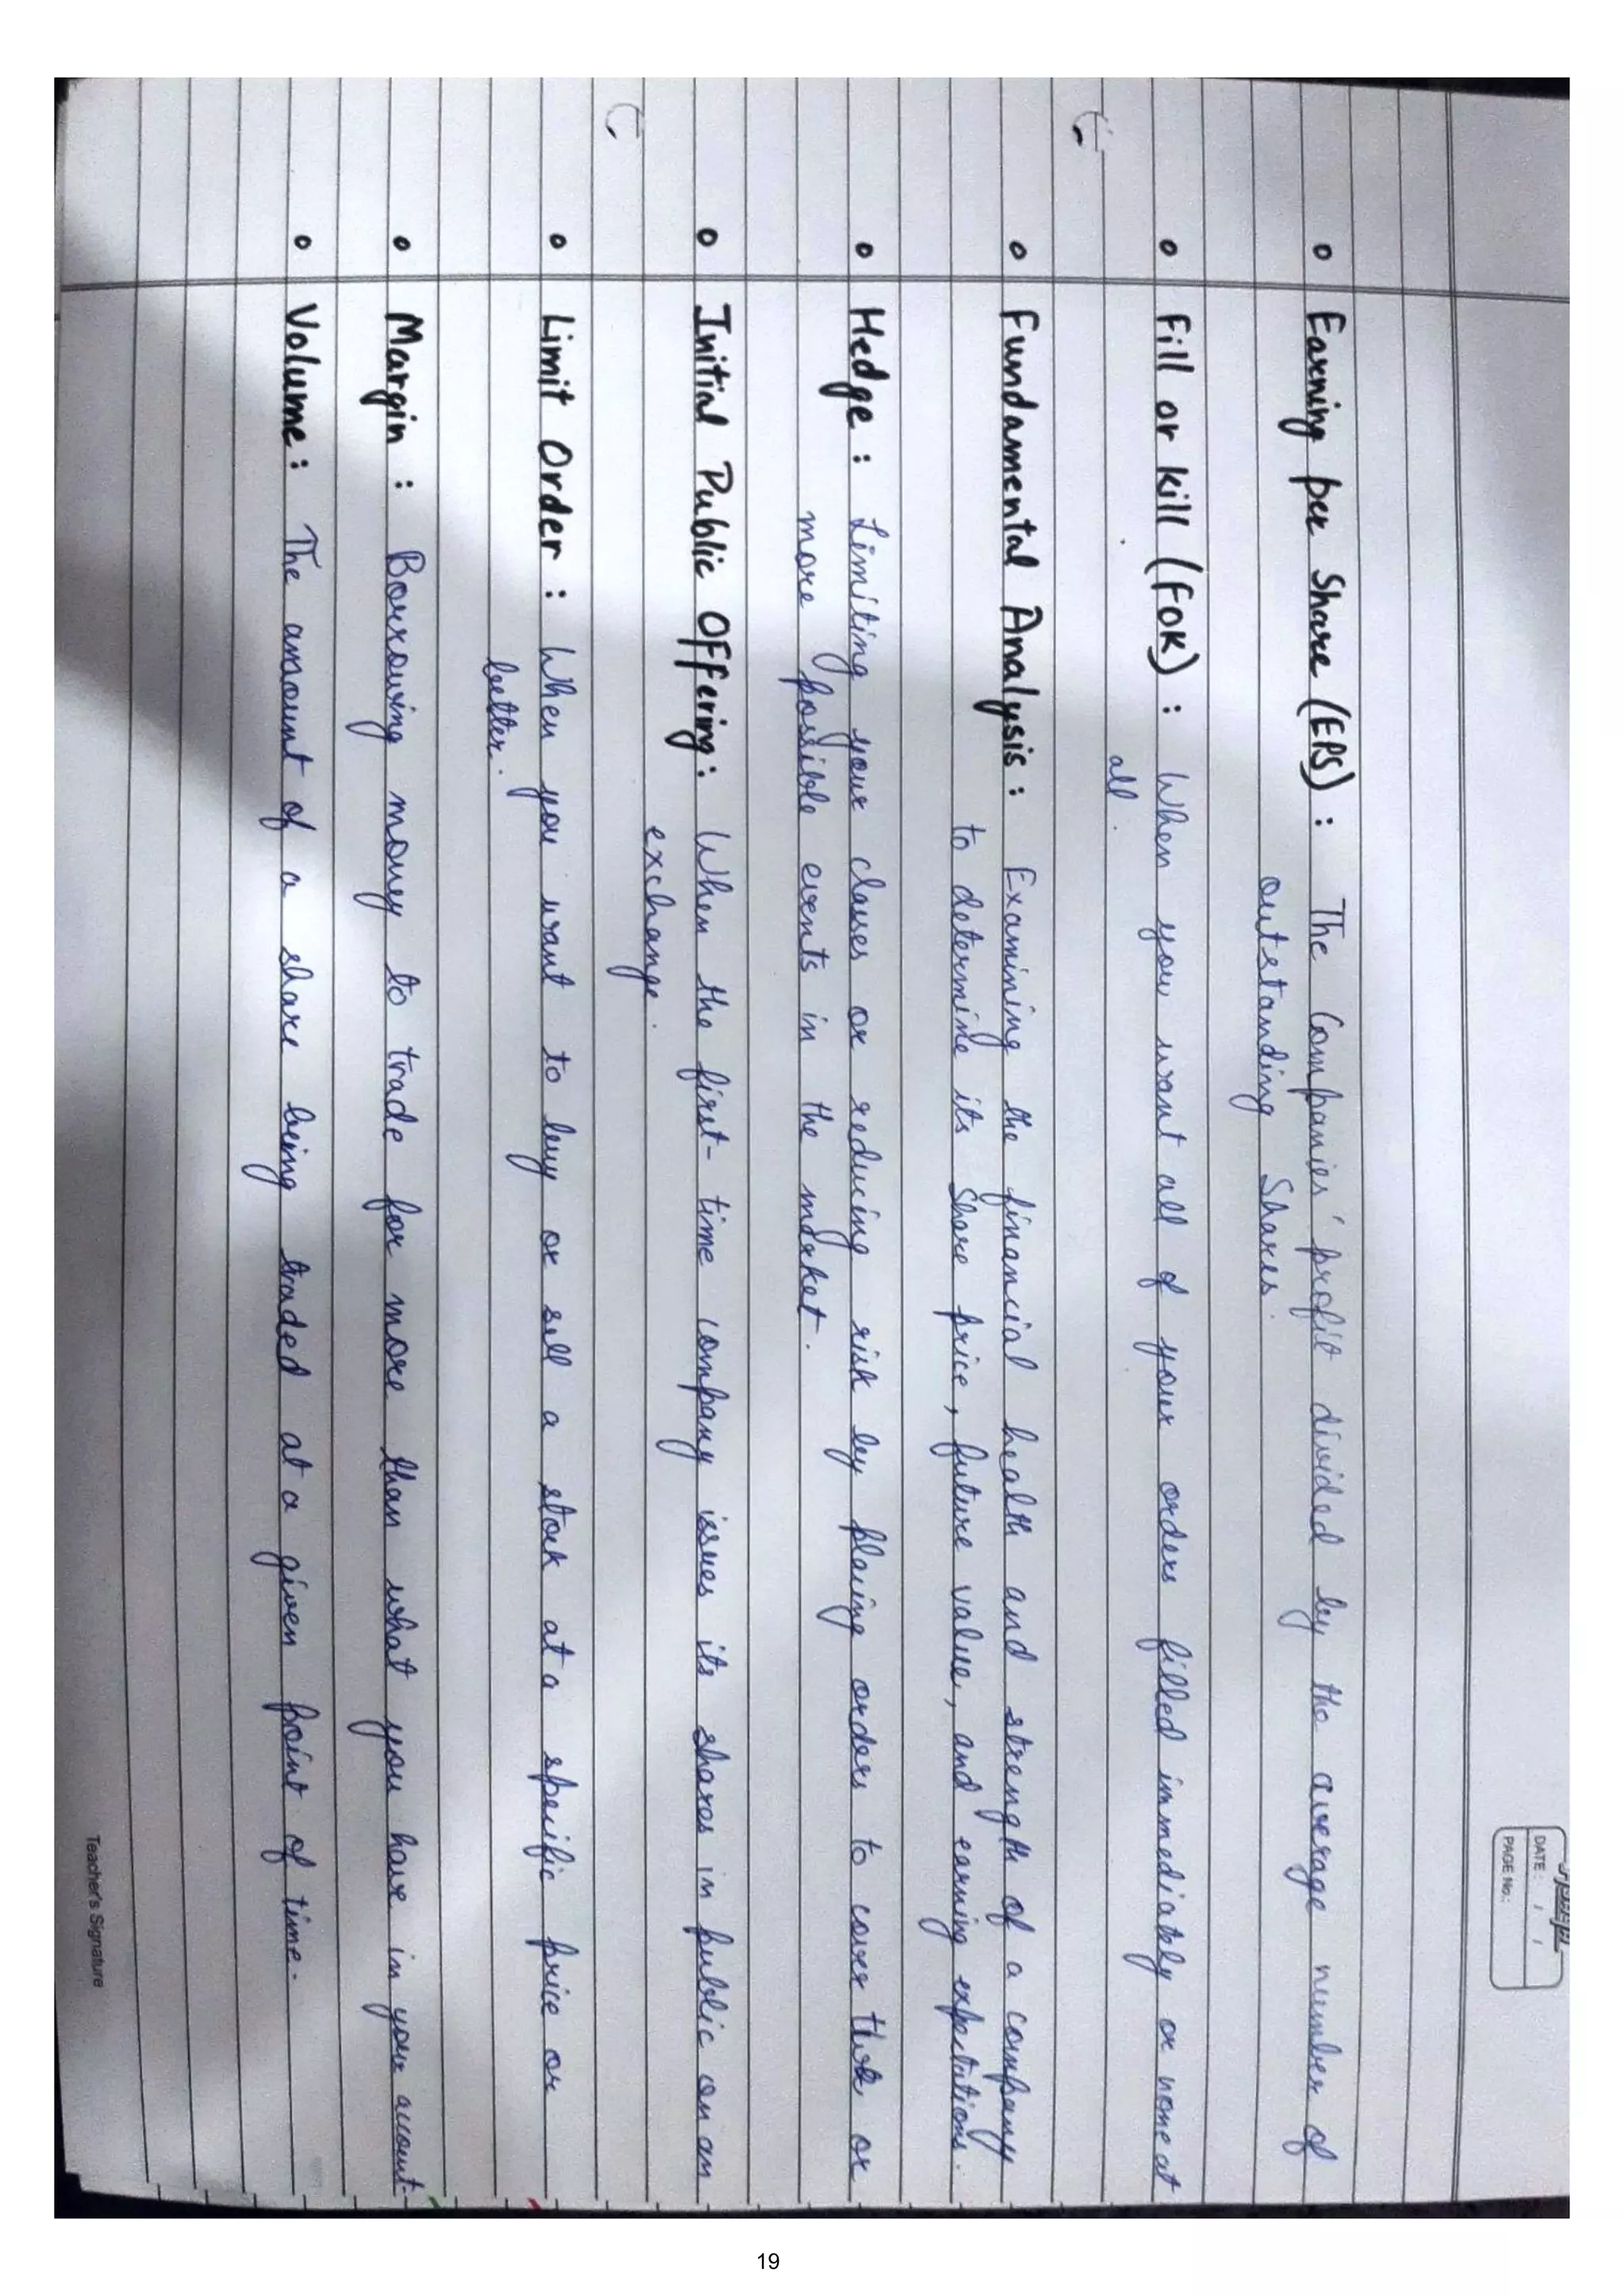 DATE: / /
PAGE No.:
• Earning per Share (EPS) : The Companies' profit divided by the average number of
outstanding Shares.
• Fill or kill (FOK) : When you want all of your orders filled immediately or none at
all.
• Fundamental Analysis : Examining the financial health and strength of a company
to determine its Share price, future value, and earning expectations.
• Hedge : Limiting your classes or reducing risk by placing orders to cover that or
more possible events in the market.
• Initial Public Offering : When the first-time company issues its shares in public on an
exchange.
• Limit Order : When you want to buy or sell a stock at a specific price or
better.
• Margin : Borrowing money to trade for more than what you have in your account.
• Volume : The amount of a share being traded at a given point of time.
Teacher's Signature
19